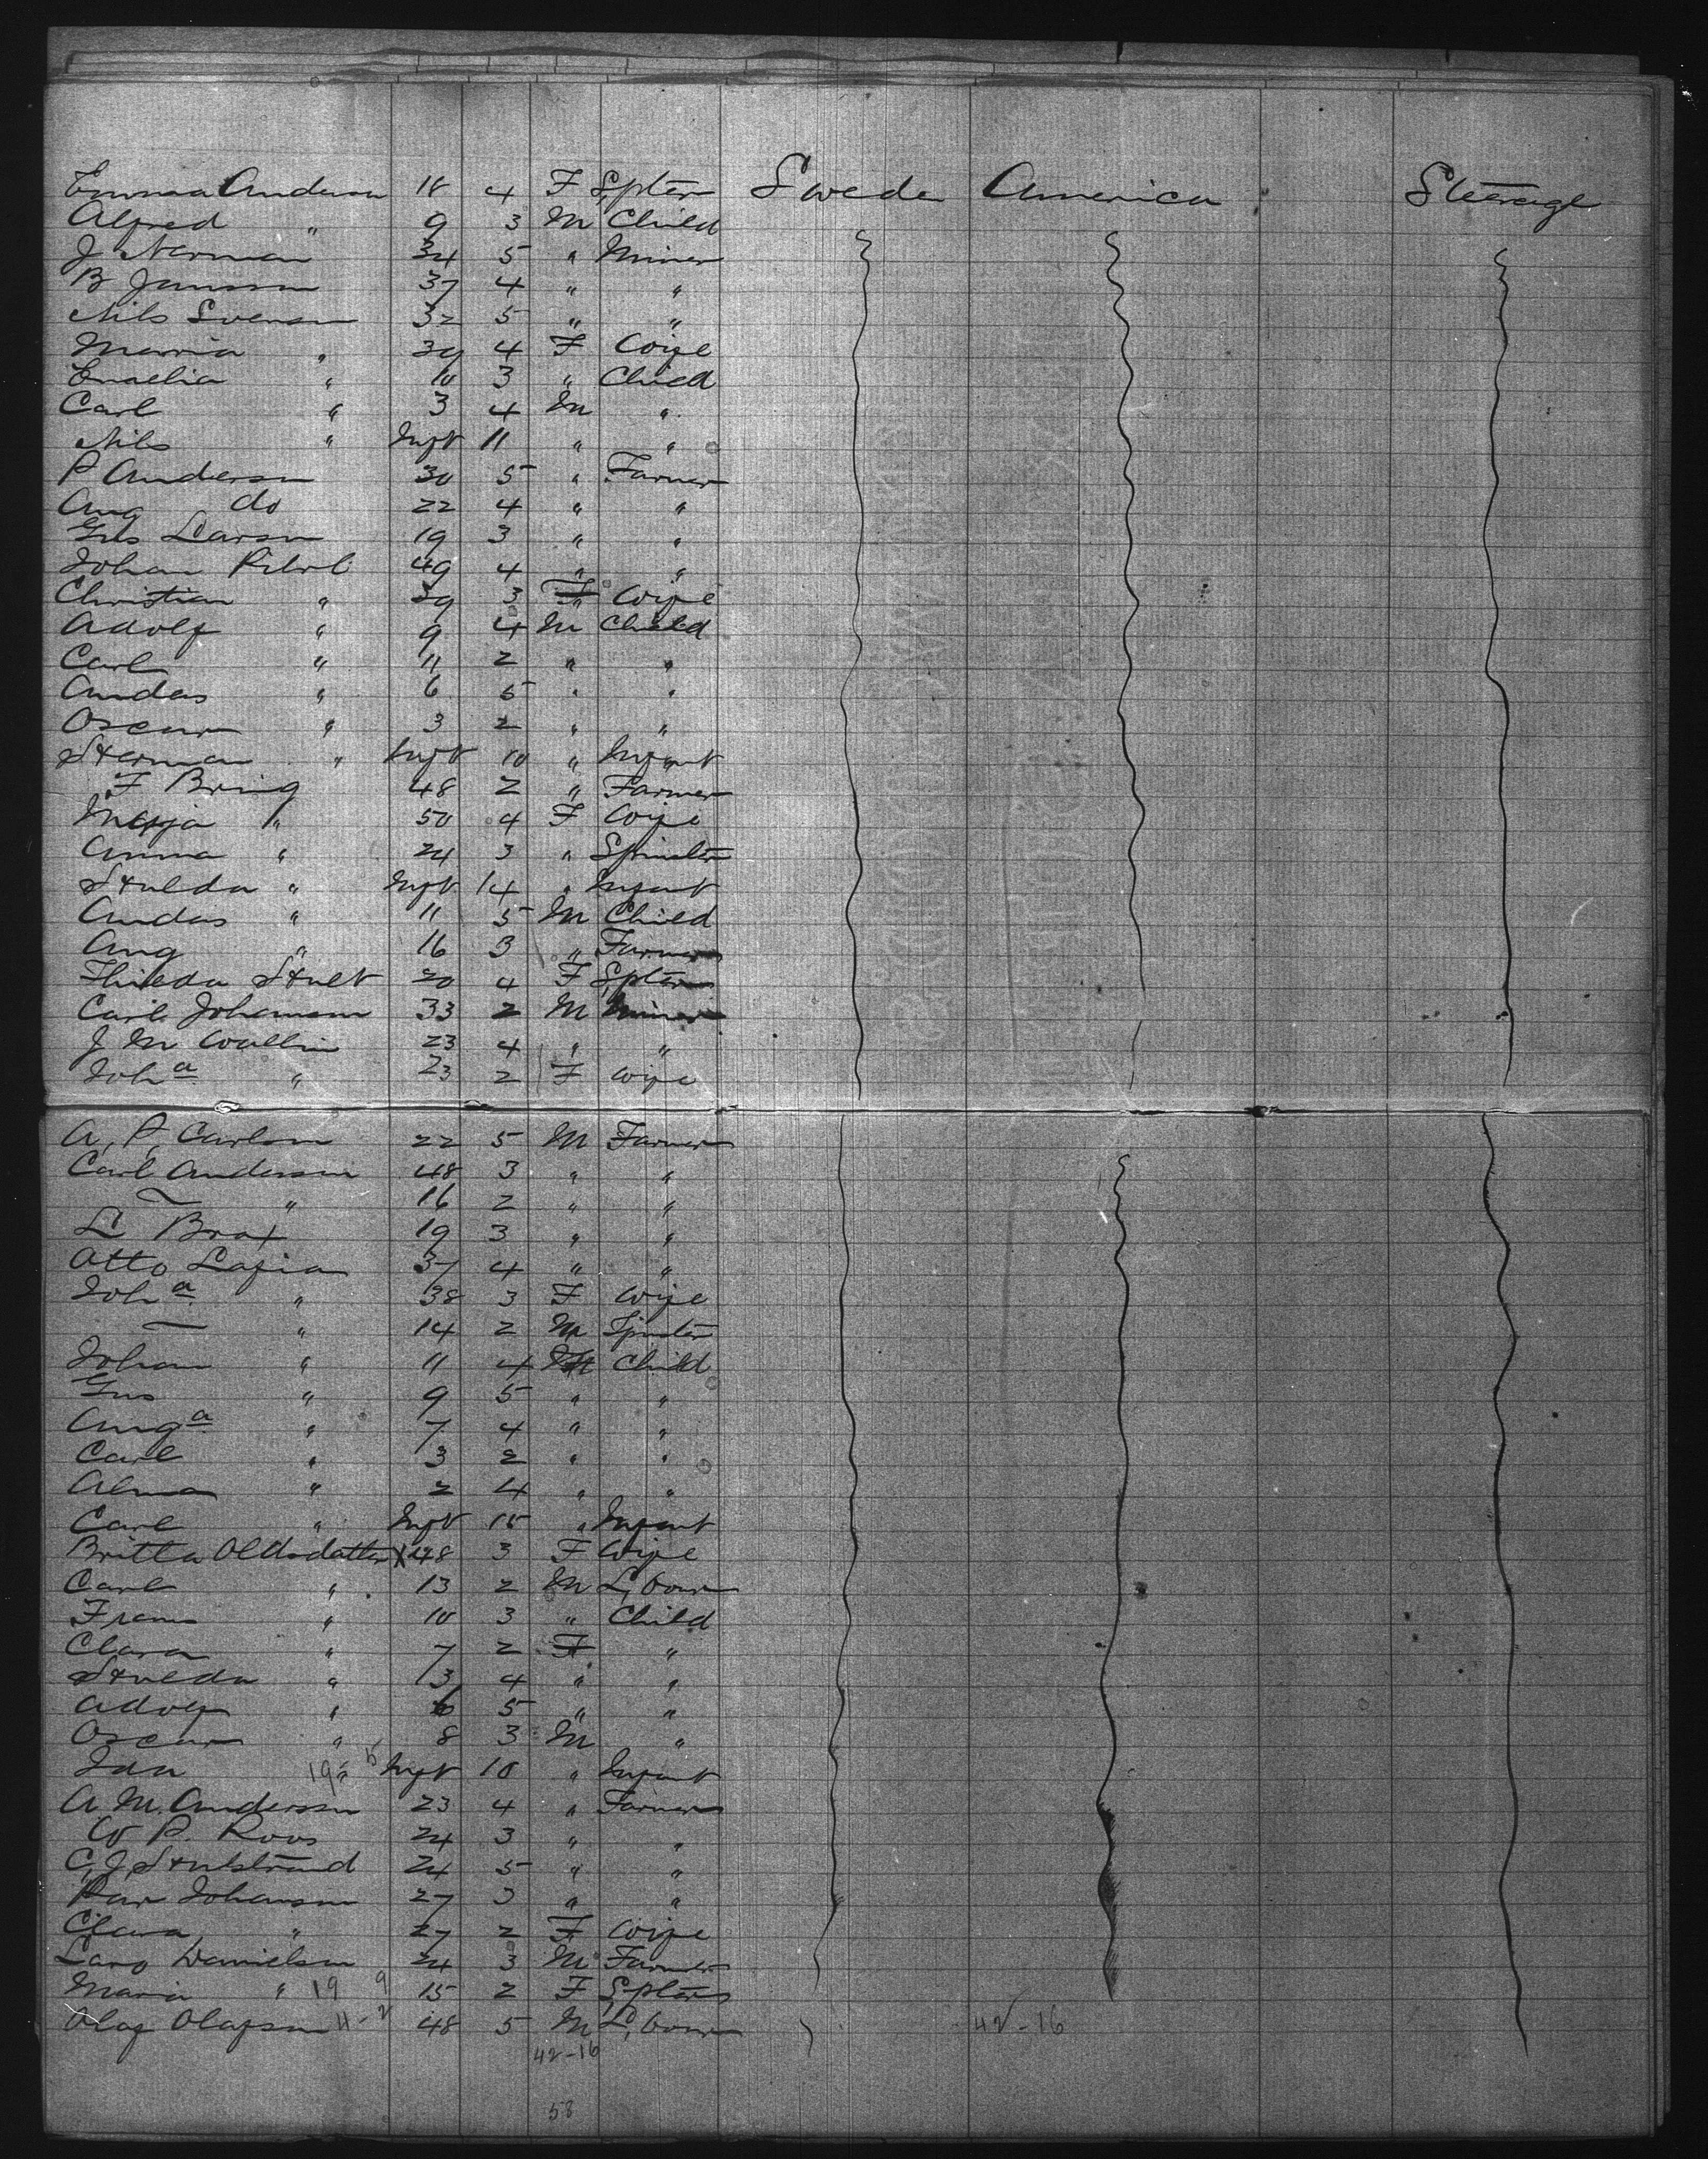 Emma Anderson 18 4 F Spter Sweden America Steerage
Alfred " 9 3 M Child
J Nerman 34 5 " Miner
B Jansson 37 4 " "
Nils Svenson 32 5 " "
Maria " 39 4 F Wife
Emelia " 10 3 " Child
Carl " 3 4 M "
Nils " Inft 11 " "
P Anderson 30 5 " Farmer
Aug do 22 4 " "
Gus Larson 19 3 " "
Johan 49 4 " "
Christian " 39 3 F Wife
Adolf " 9 4 M Child
Carl " 11 2 " "
Andas " 6 5 " "
Oscar " 3 2 " "
Herman " Inft 10 " Infant
F Bring 48 2 " Farmer
Maja " 50 4 F Wife
Anna " 24 3 " Spinster
Hulda " Inft 14 " Infant
Andas " 11 5 M Child
Aug " 16 3 " Farmer
Hult 20 4 F Spter
Carl Johanson 33 2 M Miner
J M Wallin 23 4 " "
Joha " 23 2 F Wife
A, P, Carlson 22 5 M Farmer
Carl Anderson 48 3 " "
— " 16 2 " "
L Brax 19 3 " "
Otto Lafia 37 4 " "
Joha " 38 3 F Wife
— " 14 2 M Spinster
Johan " 11 4 M Child
Gus " 9 5 " "
Auga " 7 4 " "
Carl " 3 2 " "
Alma " 2 4 " "
Carl " Inft 15 " Infant
Britta Oldsdatter X 48 3 F Wife
Carl " 13 2 M Lbour
Frans " 10 3 " Child
Clara " 7 2 F "
Hulda " 13 4 " "
Adolf " 6 5 " "
Oscar " 8 3 M "
Jan " Inft 10 " Infant
A. M. Anderson 23 4 " Farmer
W P. Roos 24 3 " "
C, J, Hulstrand 24 5 " "
Johanson 27 3 " "
Clara " 27 2 F Wife
Lars Danielson 24 3 M Farmer
Maria " 19 9 15 2 F Spter
Olof Olafson 11-2 48 5 M Lbour 42-16
42-16
58